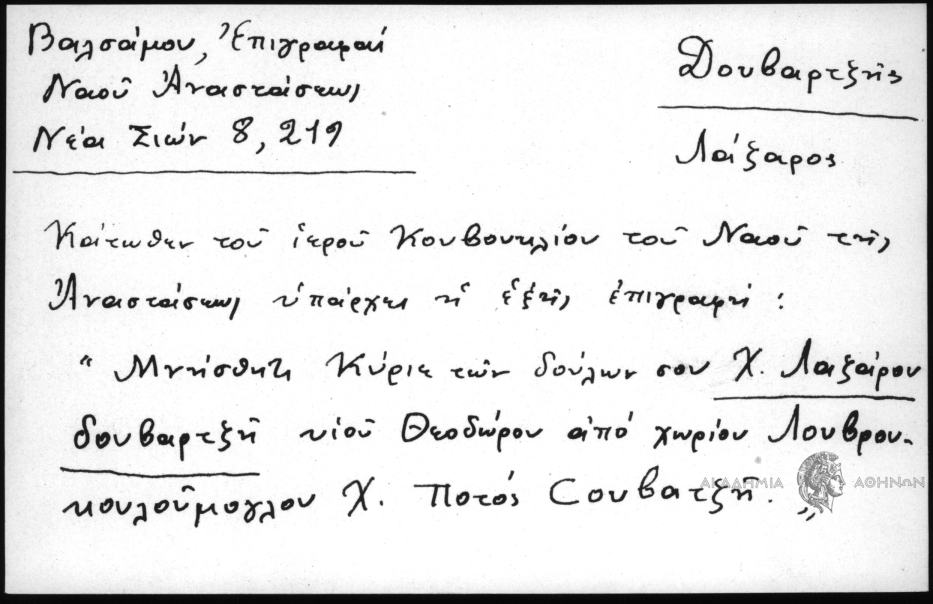 Βαλσάμου, Ἐπιγραφαί
Ναοῦ Ἀναστάσεως
Νέα Σιών 8, 219
Δουβαρτζῆς
Λάζαρος
Κάτωθεν τοῦ ἱεροῦ Κουβουκλίου τοῦ Ναοῦ τῆς
Ἀναστάσεως ὑπάρχει ἡ ἑξῆς ἐπιγραφή :
"Μνήσθητι Κύριε τῶν δούλων σου Χ. Λαζάρου
δουβαρτζῆ υἱοῦ Θεοδώρου ἀπό χωρίου Λουβρου-
κουλοῦμογλου Χ. Ποτός Σουβατζῆ."
ΑΚΑΔΗΜΙΑ ΑΘΗΝΩΝ